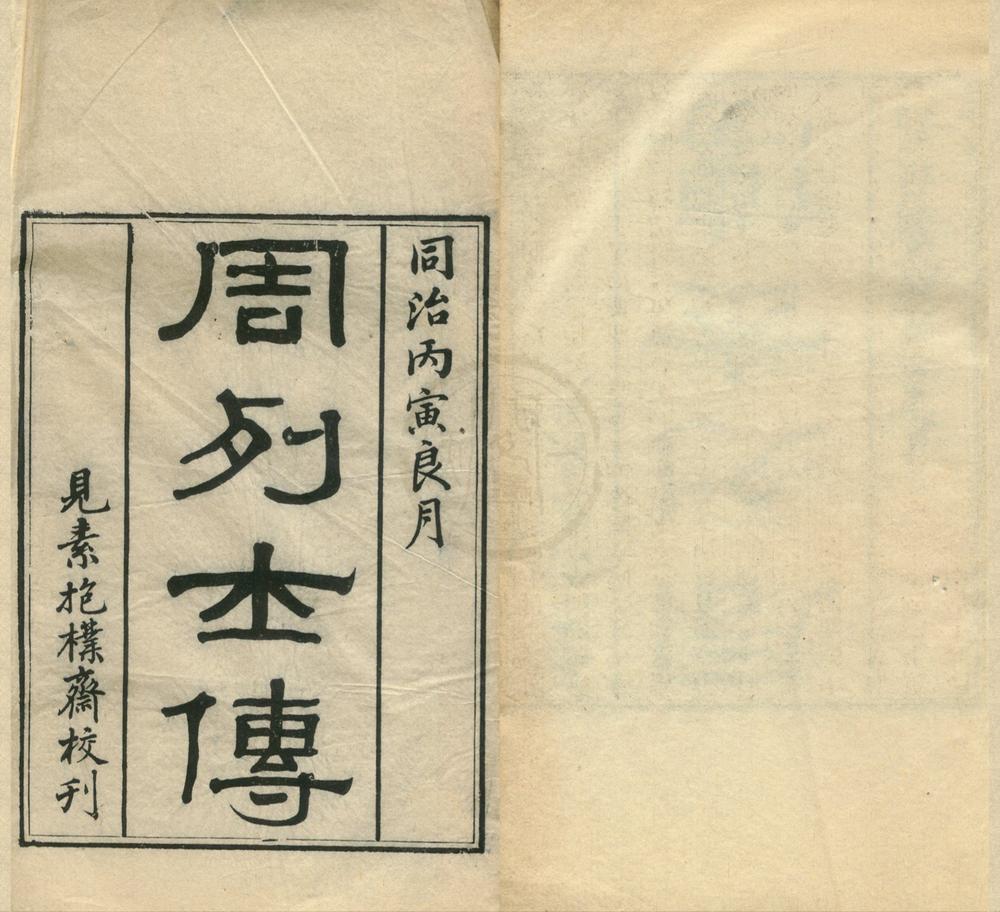 同治丙寅良月
周列士傳
見素抱樸齋校刊